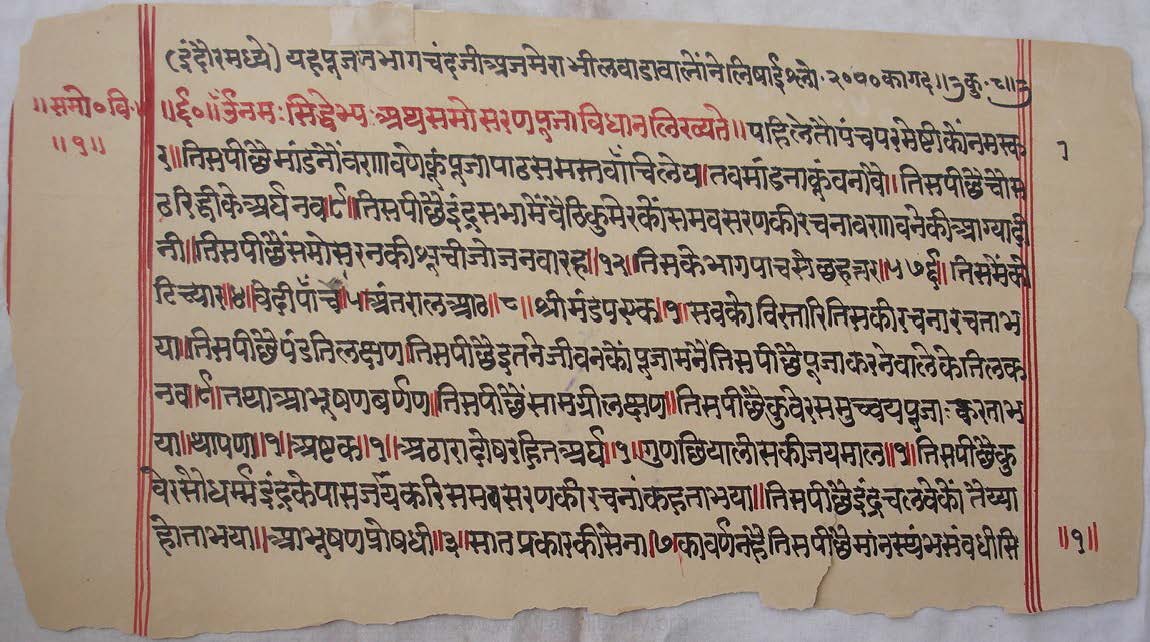 (इंदौरमध्ये) यह पूजन भागचंदजी अजमेरा भीलवाडा वालोंने लिषाई श्लो॰ २०१० कागद॥
॥समो॰वि॰॥
॥१॥
॥र्द॰॥ ॐनमः सिद्धेभ्यः अथ समोसरणपूजाविधान लिख्यते॥ पहिलेतौ पंचपरमेष्टीकों नमस्क
र॥ तिसपीछै मांडनौं पूजापाठ समस्त वाँचि लेय॥ तव मांडनाकूं वनोवै॥ तिसपीछै चौस
ठरिद्धीके अर्घ नव॥९॥ तिसपीछै इंद्र सभामें वैठि कुमेरकों समवसरणकी रचना वरणावनेकी आग्या दी
नी॥ तिसपीछैं समोसरनकी भूची जोजन वारह॥१२॥ तिसके भाग पाचसै छहत्तर॥५७६॥ तिसमें को
टि च्यार॥४॥ वेदी पाँच॥५॥ अंतराल आठ॥८॥ श्रीमंडप एक॥१॥ सवको विस्तारि तिसकी रचना रचता भ
या॥ तिसपीछै पंडित लक्षण॥ तिसपीछै इतने जीवनकों पूजा मनें॥ तिसपीछै पूजा करनेवालेके तिलक
नव॥९॥ तथा आभूषण बर्णण॥ तिसपीछैं सामग्री लक्षण॥ तिसपीछै कुवेर समुच्चयपूजाः करता भ
या॥ थापणा॥१॥ अष्टक॥१॥ अठारा दोषरहित अर्घ॥१॥ गुण छियालीसकी जयमाल॥१॥ तिसपीछै कु
वेर सौधर्म्म इंद्रके पास जाय करि समवसरणकी रचनां कहता भया॥ तिसपीछै इंद्र चलवेकों तैय्या
होता भया॥ आभूषण पोषधी॥३॥ सात प्रकारकी सेना॥७॥ का वर्णन है तिसपीछै मांनस्थंभ संवधी सि
॥१॥